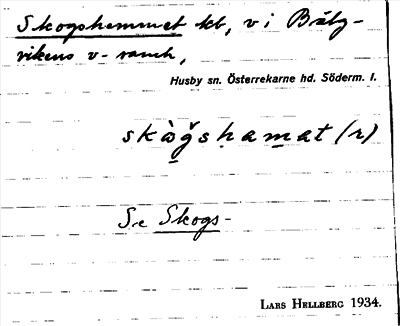 Skogshemmet kb, v i Bälg-
vikens v-ramk,
Husby sn. Österrekarne hd. Söderm. l.
skògshamat (r)
Se Skogs-
LARS HELLBERG 1934.